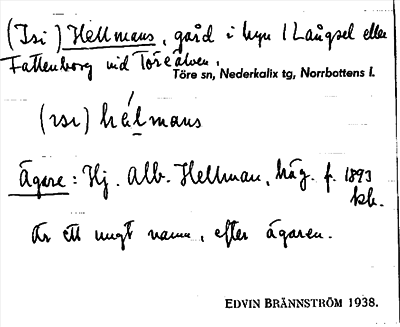 (Isi) Hellmans, gård i byn Långsel eller
Fattenborg vid Töreälven.
Töre sn, Nederkalix tg, Norrbottens l.
(ısı) hélmans
Ägare: Hj. Alb. Hellman, häg. f. 1893
kb.
Är ett ungt namn, efter ägaren.
EDVIN BRÄNNSTRÖM 1938.